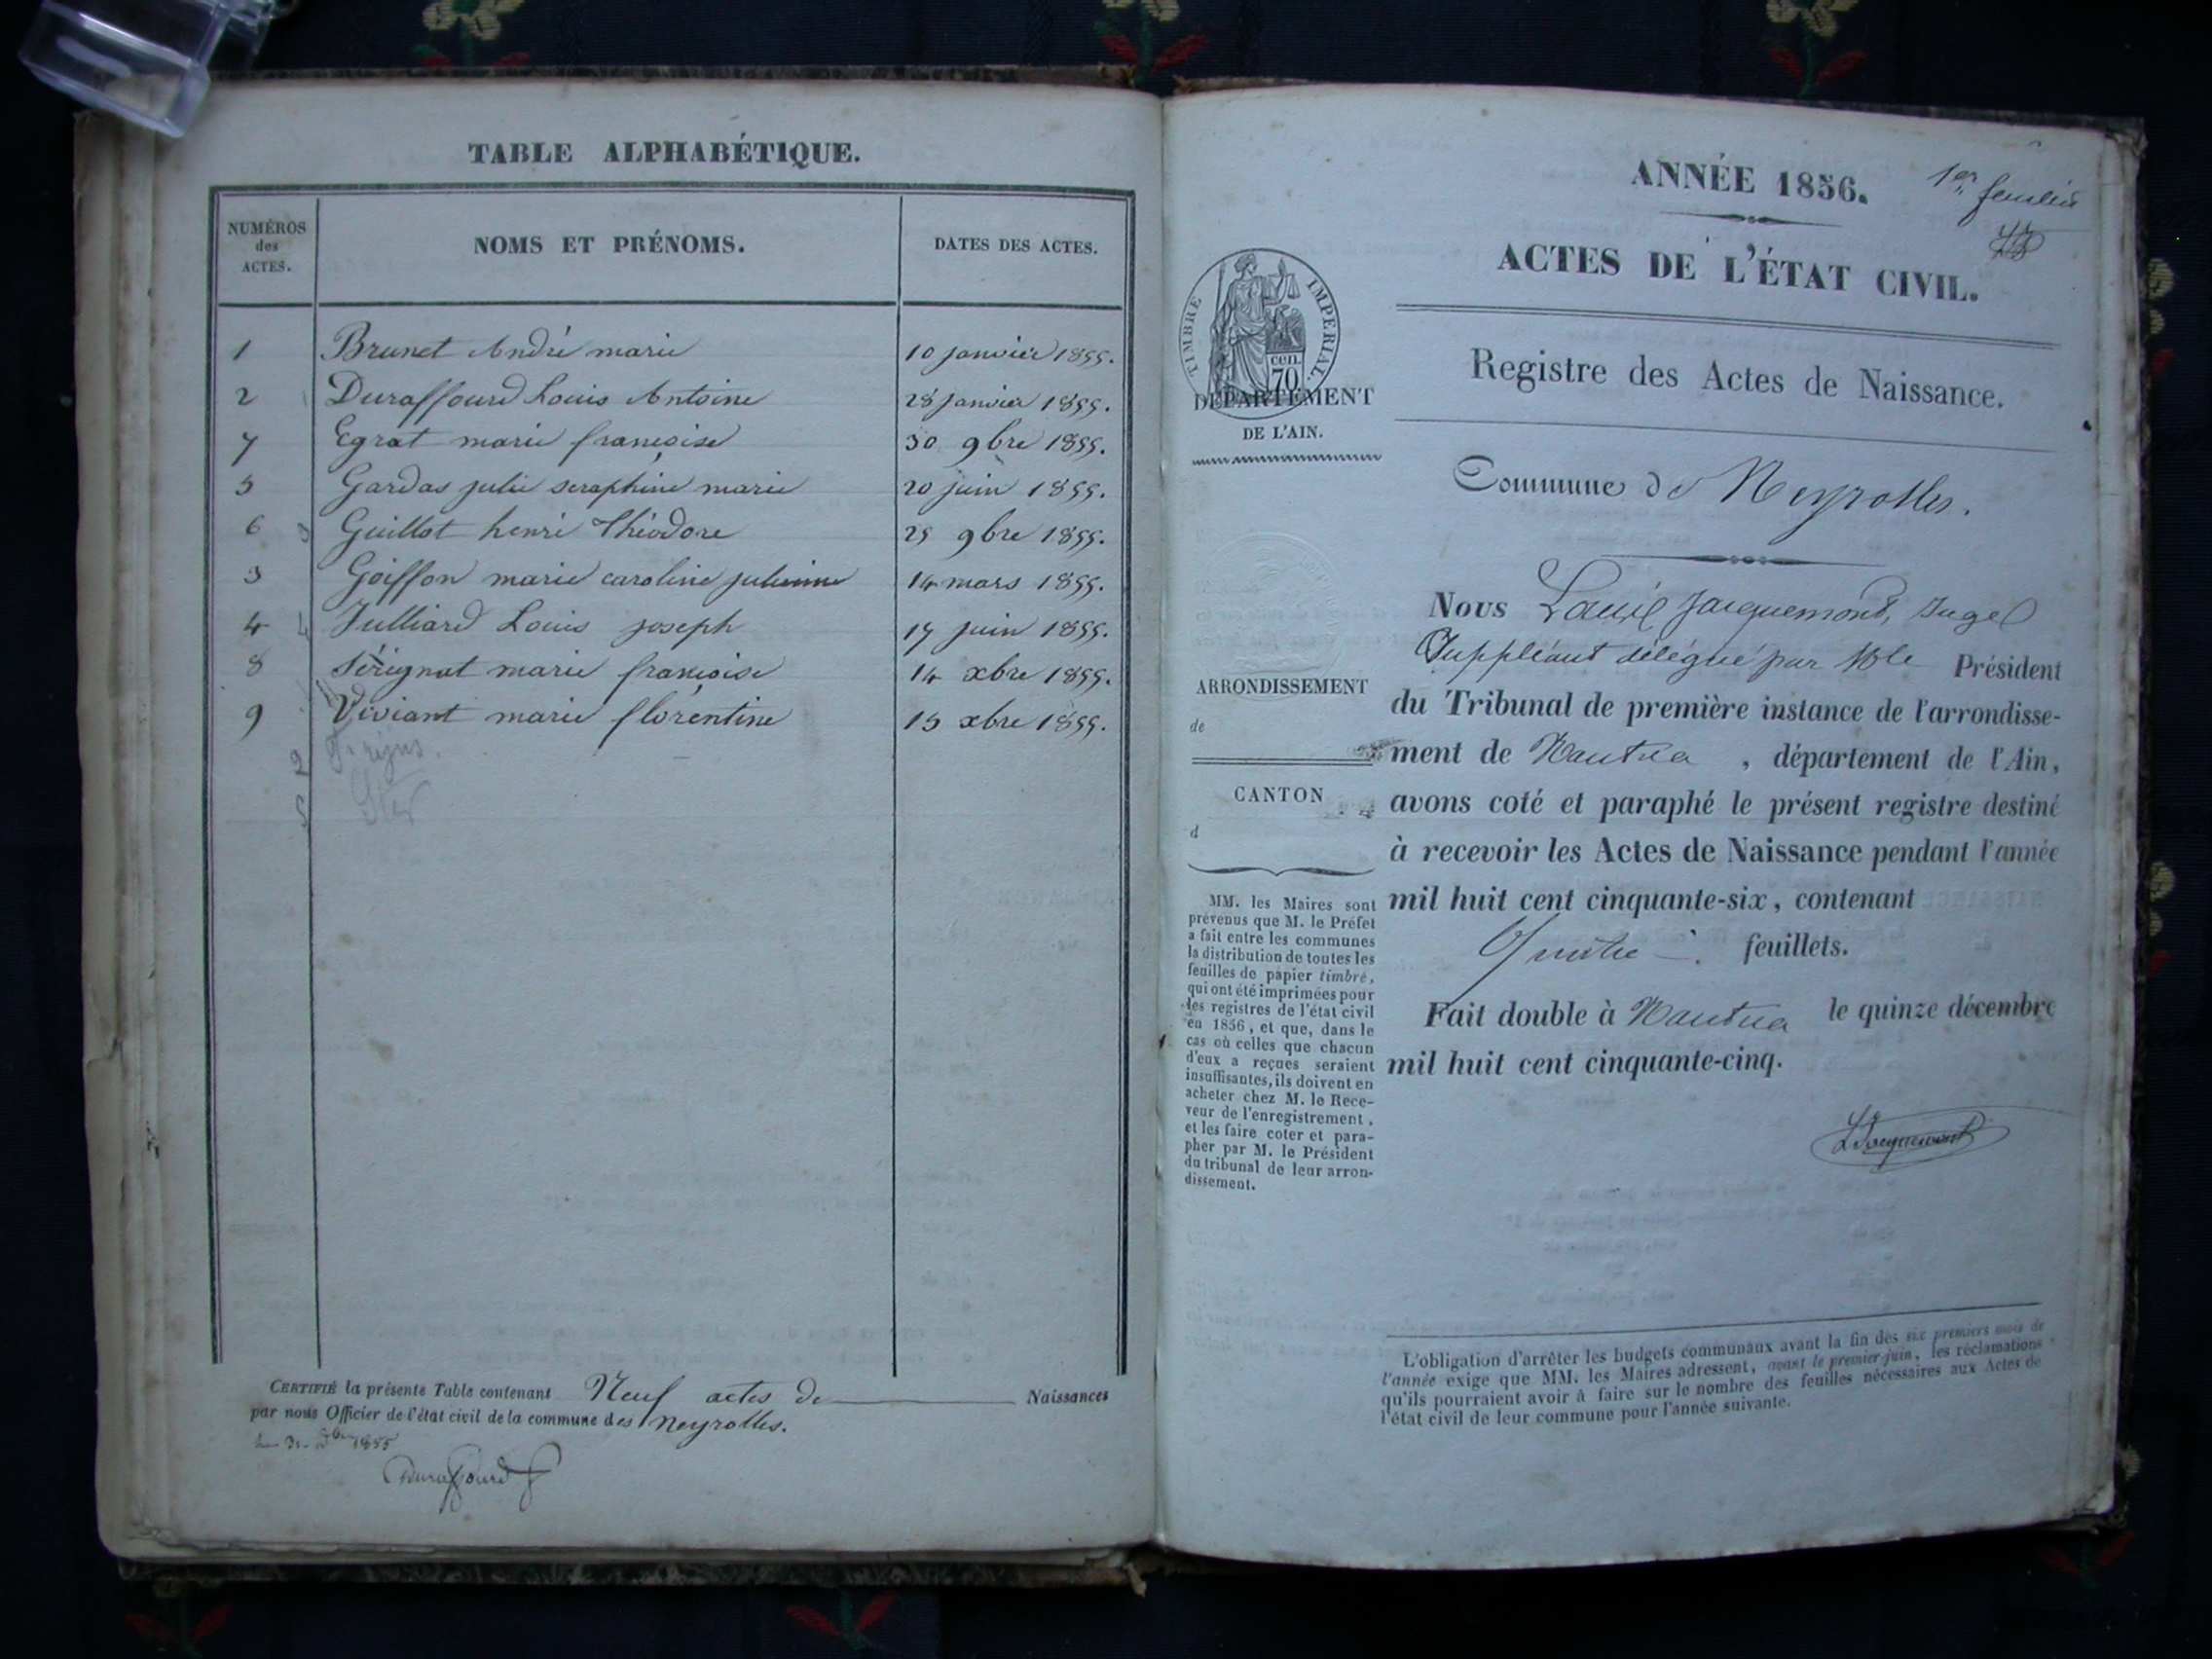 TABLE ALPHABÉTIQUE.
NUMÉROS des ACTES.
NOMS ET PRÉNOMS.
DATES DES ACTES.
1 Brunet André marie 10 janvier 1855.
2 Duraffourd Louis Antoine 28 janvier 1855.
7 Egrat marie françoise 30 9bre 1855.
5 Gardas julie seraphine marie 20 juin 1855.
6 Guillot henri Théodore 25 9bre 1855.
3 Goiffon marie caroline julienne 14 mars 1855.
4 Julliard Louis joseph 17 juin 1855.
8 Sérignat marie françoise 14 xbre 1855.
9 Viviant marie florentine 15 xbre 1855.
CERTIFIÉ la présente Table contenant Neuf actes de Naissances
par nous Officier de l'état civil de la commune des Neyrolles.
1855
Duraffourd
ANNÉE 1856.
1er feuillet
ACTES DE L'ÉTAT CIVIL.
Registre des Actes de Naissance.
TIMBRE IMPERIAL.
cen.
70
DÉPARTEMENT
DE L'AIN.
Commune de Neyrolles.
Nous Louis Jacquemond, Juge
Suppléant délégué par Mr le Président
du Tribunal de première instance de l'arrondisse-
ment de Nantua, département de l'Ain,
avons coté et paraphé le présent registre destiné
à recevoir les Actes de Naissance pendant l'année
mil huit cent cinquante-six, contenant
Quatre feuillets.
Fait double à Nantua le quinze décembre
mil huit cent cinquante-cinq.
LJacquemond
ARRONDISSEMENT
de
CANTON
d
MM. les Maires sont
prévenus que M. le Préfet
a fait entre les communes
la distribution de toutes les
feuilles de papier timbré,
qui ont été imprimées pour
les registres de l'état civil
en 1856, et que, dans le
cas où celles que chacun
d'eux a reçues seraient
insuffisantes, ils doivent en
acheter chez M. le Rece-
veur de l'enregistrement,
et les faire coter et para-
pher par M. le Président
du tribunal de leur arron-
dissement.
L'obligation d'arrêter les budgets communaux avant la fin des six premiers mois de
l'année exige que MM. les Maires adressent, avant le premier juin, les réclamations
qu'ils pourraient avoir à faire sur le nombre des feuilles nécessaires aux Actes de
l'état civil de leur commune pour l'année suivante.